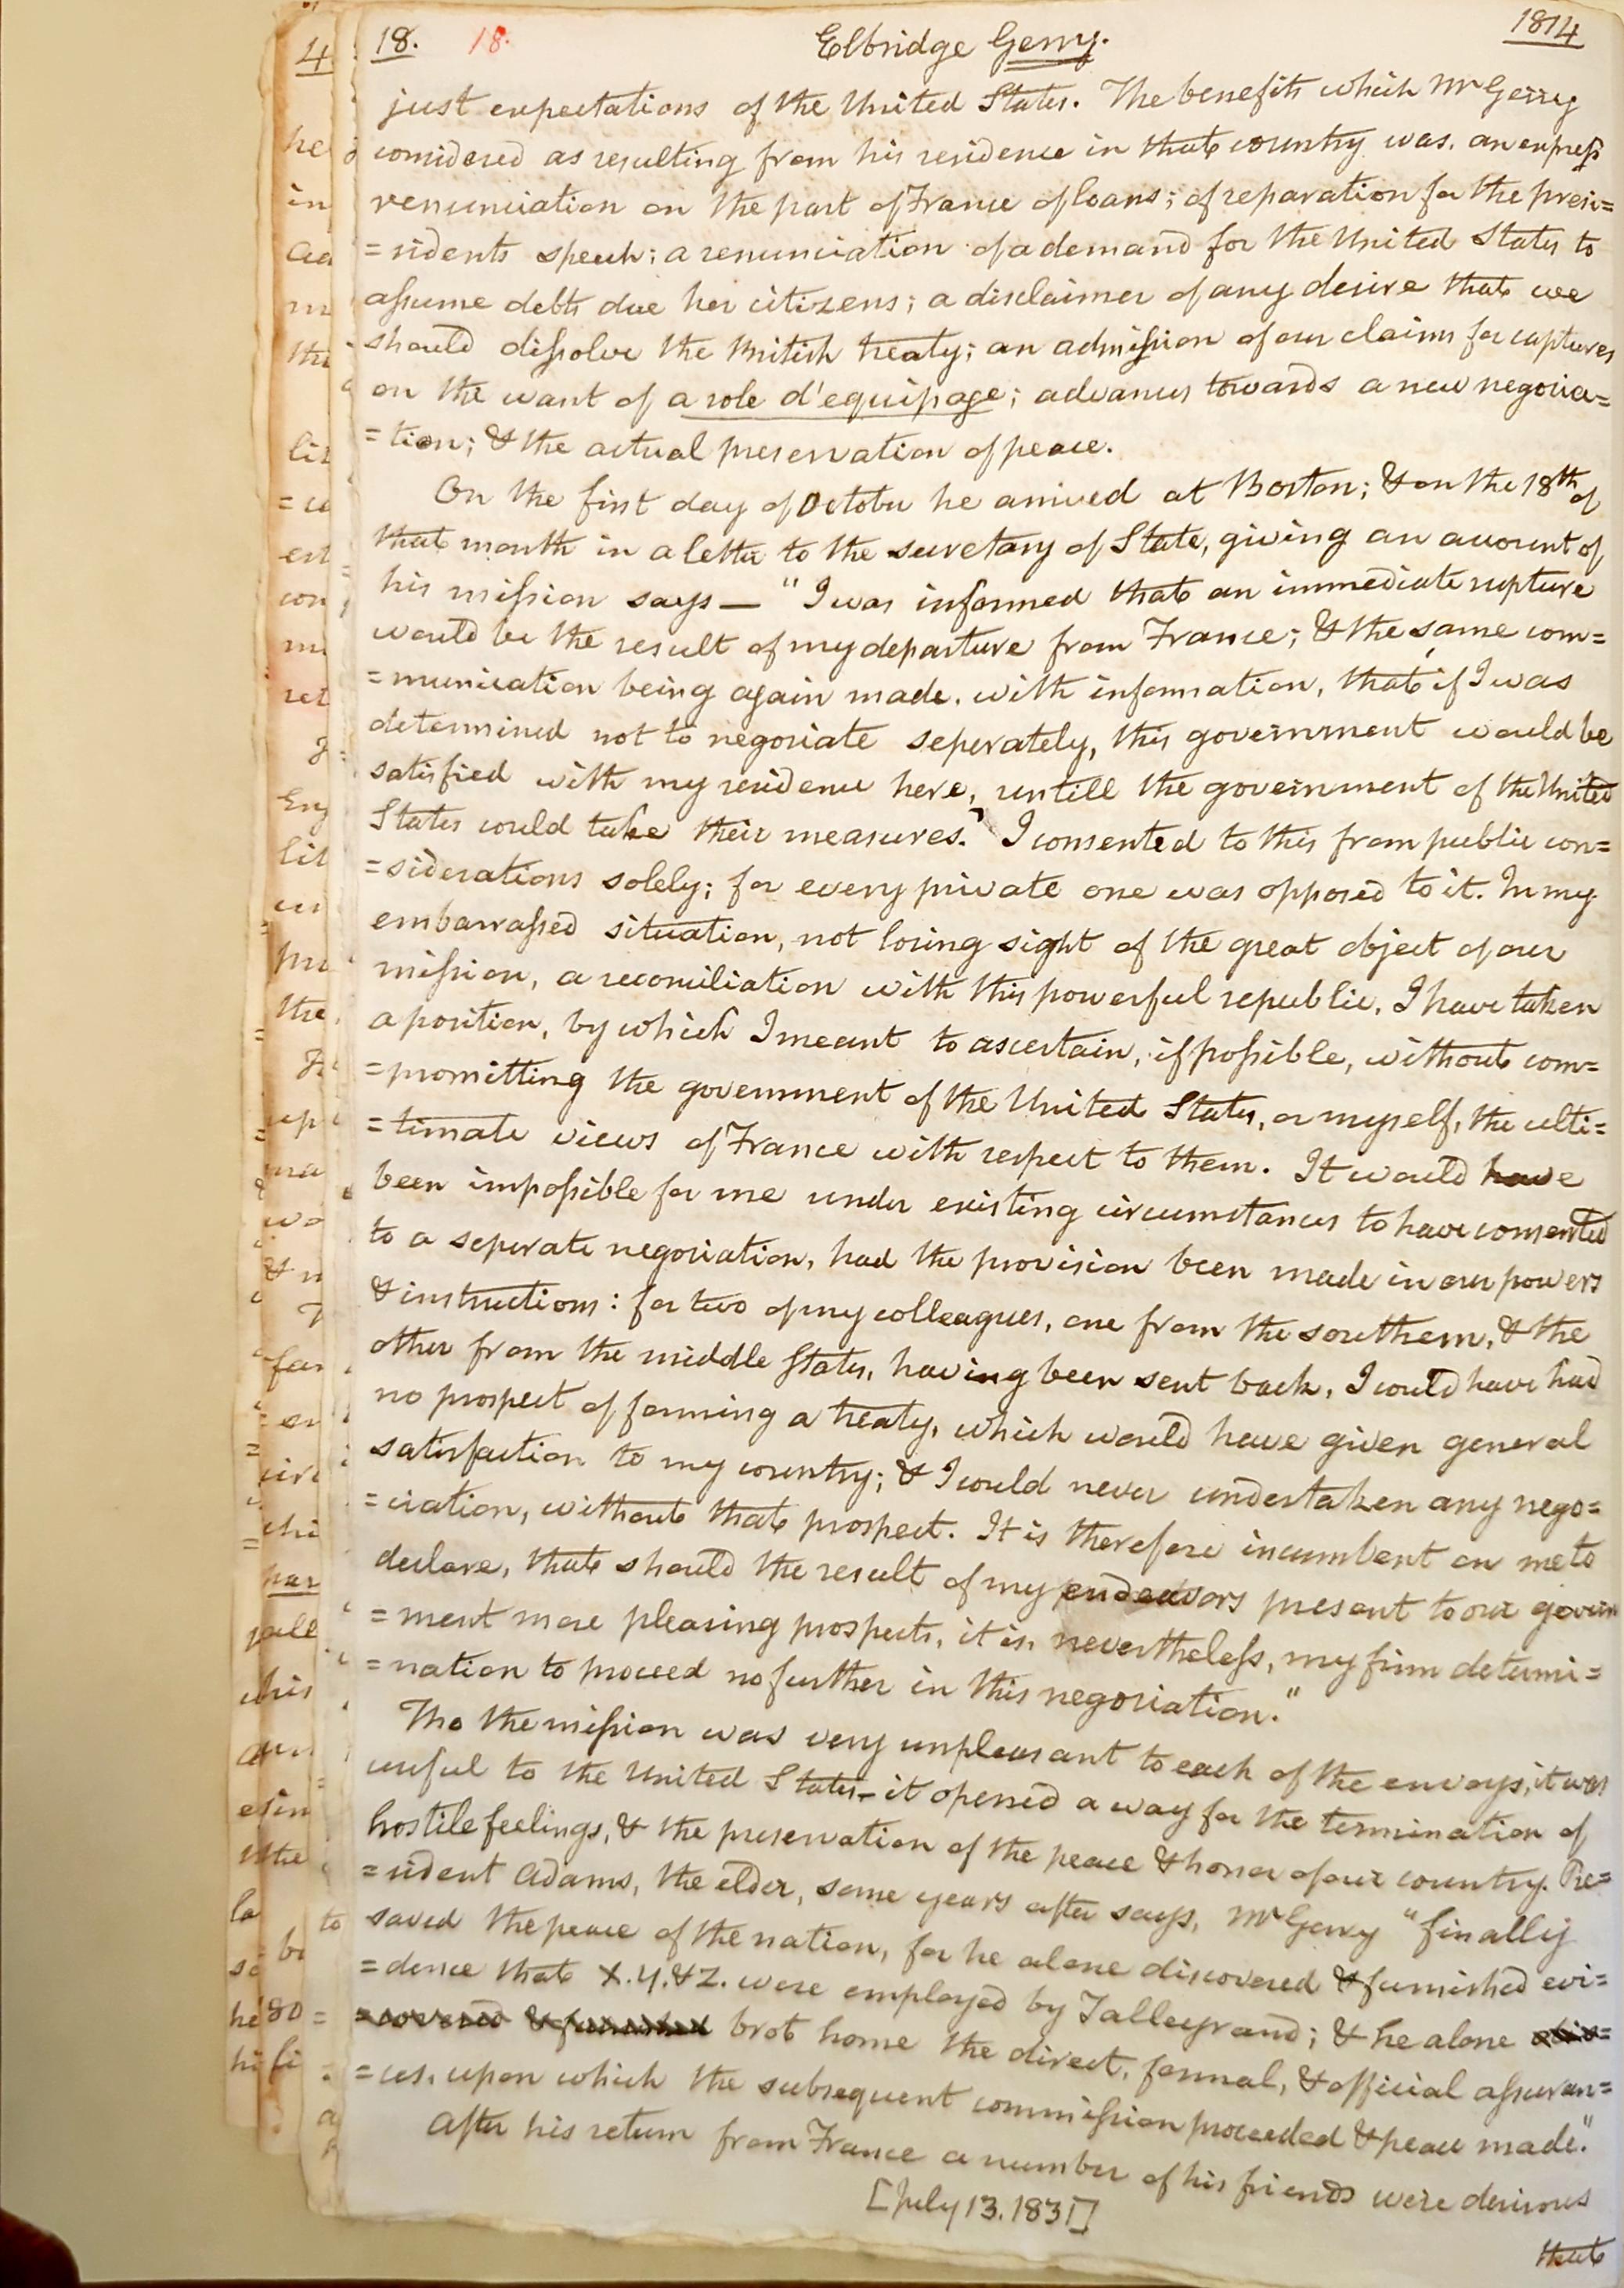 18. 18. Elbridge Gerry. 1814
just expectations of the United States. The benefits which Mr Gerry
considered as resulting from his residence in that country was, an express
renunciation on the part of France of loans; of reparation for the presi=
=sidents speech; a renunciation of a demand for the United States to
assume debts due her citizens; a disclaimer of any desire that we
should dissolve the British treaty; an admission of our claims for captures
on the want of a role d'equipage; advances towards a new negocia=
=tion; & the actual preservation of peace.
On the first day of October he arrived at Boston; & on the 18th of
that month in a letter to the secretary of State, giving an account of
his mission says — "I was informed that an immediate rupture
would be the result of my departure from France; & the same com=
=munication being again made, with information, that if I was
determined not to negociate seperately, this government would be
satisfied with my residence here, untill the government of the United
States could take their measures." I consented to this from public con=
=siderations solely; for every private one was opposed to it. In my
embarrassed situation, not losing sight of the great object of our
mission, a reconciliation with this powerful republic, I have taken
a position, by which I meant to ascertain, if possible, without com=
=promitting the government of the United States, or myself, the ulti=
=timate views of France with respect to them. It would have
been impossible for me under existing circumstances to have consented
to a seperate negociation, had the provision been made in our powers
& instructions: for two of my colleagues, one from the southern, & the
other from the middle States, having been sent back, I could have had
no prospect of forming a treaty, which would have given general
satisfaction to my country; & I could never undertaken any nego=
=ciation, without that prospect. It is therefore incumbent on me to
declare, that should the result of my endeavors present to our govern
=ment more pleasing prospects, it is, nevertheless, my firm determi=
=nation to proceed no further in this negociation."
Tho the mission was very unpleasant to each of the envoys, it was
useful to the United States - it opened a way for the termination of
hostile feelings, & the preservation of the peace & honor of our country. Pre=
=sident Adams, the elder, some years after says, Mr Gerry "finally
saved the peace of the nation, for he alone discovered & furnished evi=
=dence that X.Y. & Z. were employed by Talleyrand; & he alone dis=
=covered & furnished brot home the direct, formal, & official assuran=
=ces, upon which the subsequent commission proceeded & peace made."
After his return from France a number of his friends were desirous
[July 13. 1831]
that